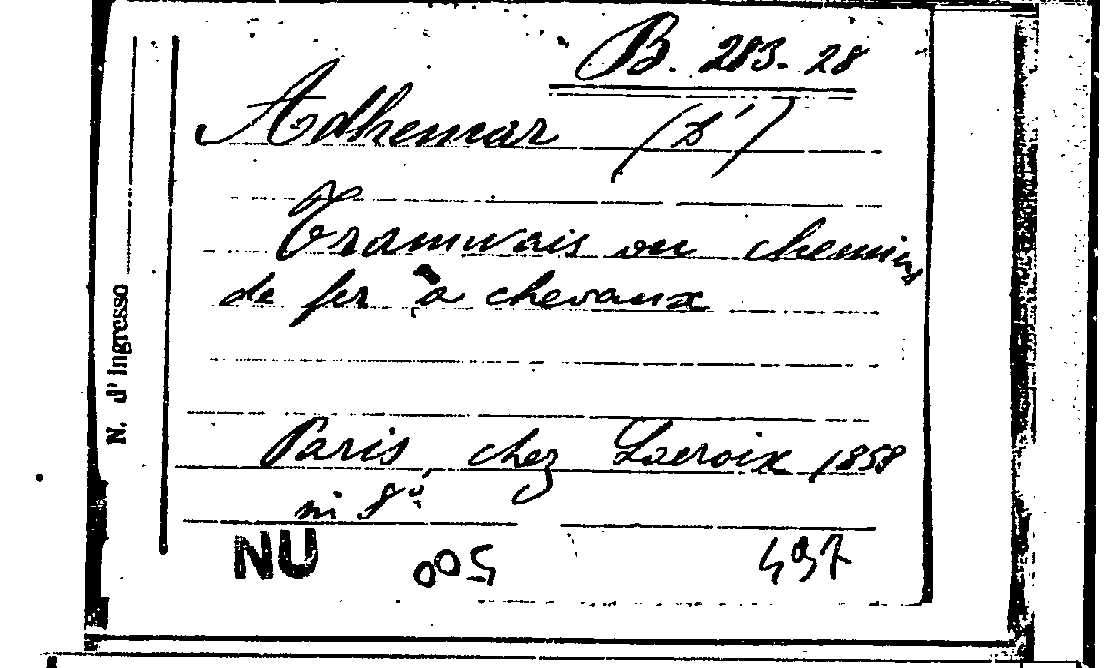 B. 283. 28
Adhemar (D')
Tramwais ou chemins
de fer à chevaux
Paris, chez Lacroix 1858
in 8º
N. d'Ingresso
NU 005 497